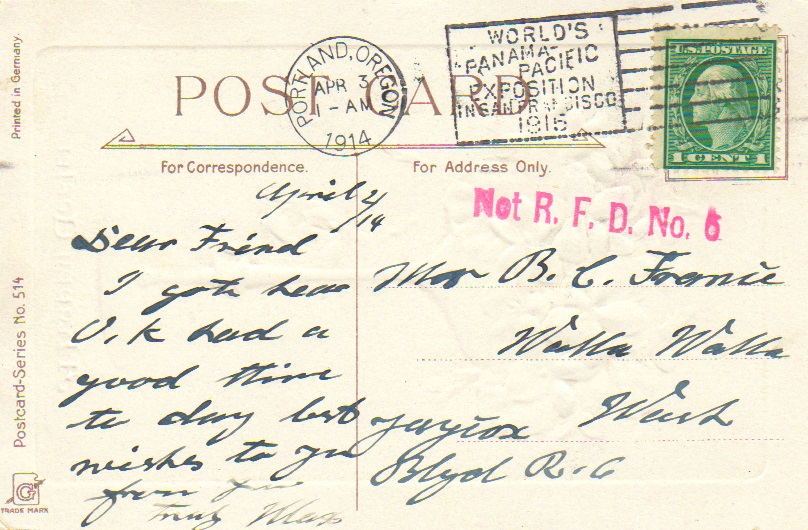 Printed in Germany.
Postcard-Series No. 514
TRADE MARK
POST CARD
For Correspondence.
For Address Only.
PORTLAND, OREGON
APR 3
1 - AM
1914
WORLD'S
PANAMA-
PACIFIC
EXPOSITION
IN SAN FRANCISCO
1915
U.S. POSTAGE
1 CENT 1
Not R. F. D. No. 6
April 2/14
Dear Friend
I goth hear
O.K had a
good thim
to day best
wishes to you
from
truly
B. C.
Walla Walla
Wash
Blvd R-6